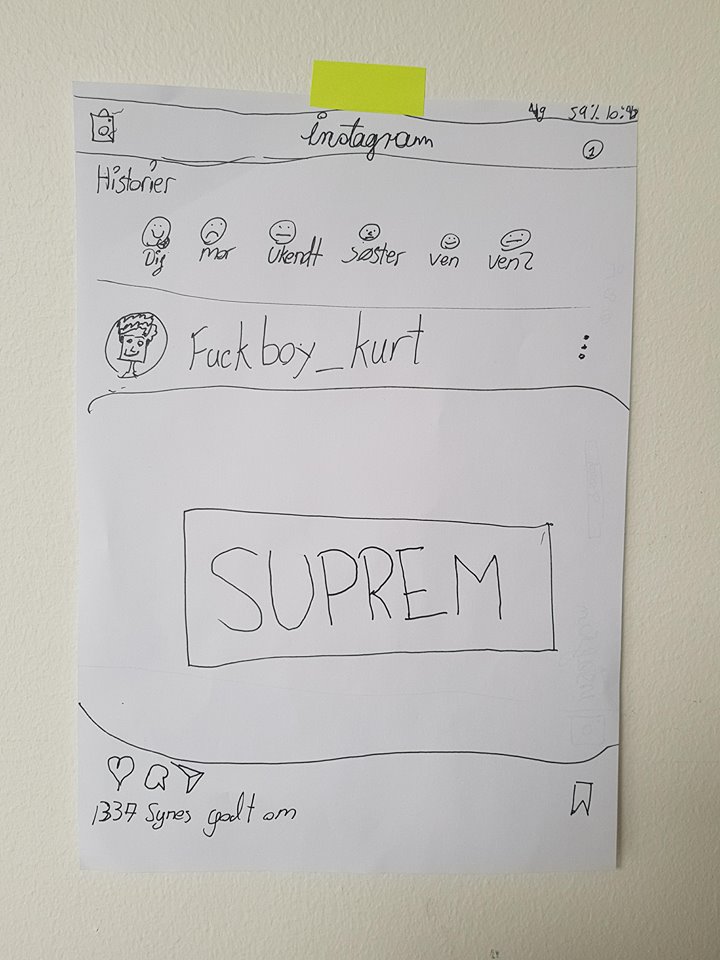 4g 59% 10:46
instagram
1
Historier
Dig mor Ukendt søster ven ven2
Fuckboy_kurt
SUPREM
1337 Synes godt om